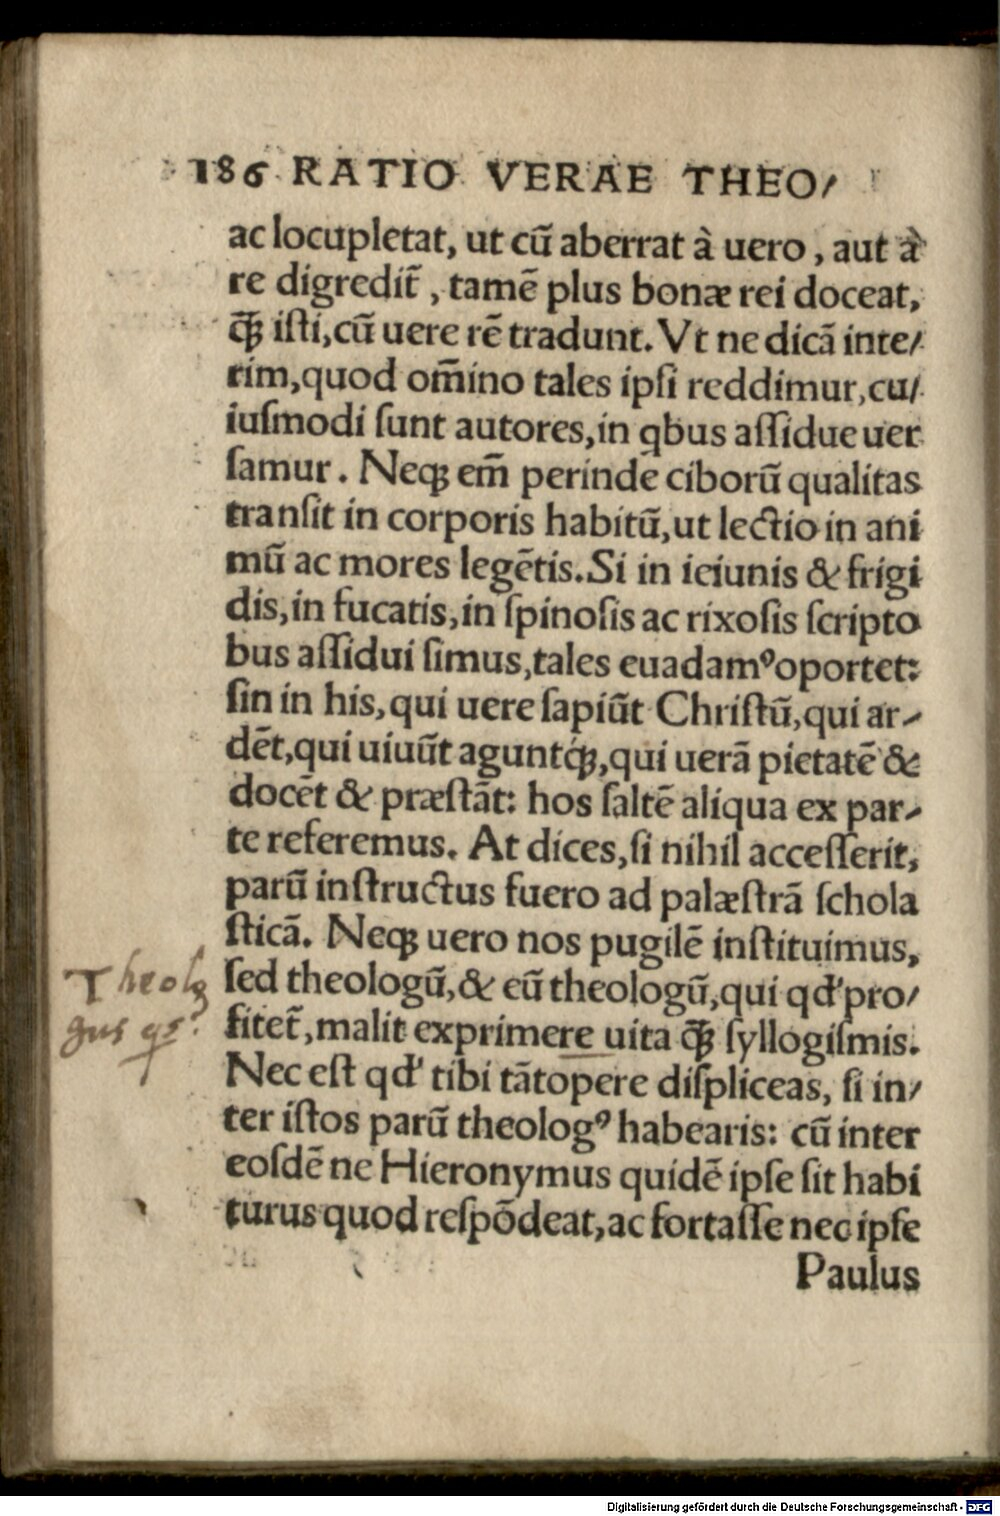 186 RATIO VERAE THEO/
ac locupletat, ut cũ aberrat à uero, aut à
re digredit̃, tamẽ plus bonæ rei doceat,
q̃ꝫ iſti, cũ uere rẽ tradunt. Vt ne dicã inte/
rim, quod om̃ino tales ipſi reddimur, cu/
iuſmodi ſunt autores, in qbus aſſidue uer
ſamur. Neqꝫ em̃ perinde ciborũ qualitas
tranſit in corporis habitũ, ut lectio in ani
mũ ac mores legẽtis. Si in ieiunis & frigi
dis, in fucatis, in ſpinoſis ac rixoſis ſcripto
bus aſſidui ſimus, tales euadamꝰ oportet:
ſin in his, qui uere ſapiũt Chriſtũ, qui ar-
dẽt, qui uiuũt aguntqꝫ, qui uerã pietatẽ &
docẽt & præſtãt: hos ſaltẽ aliqua ex par-
te referemus. At dices, ſi nihil acceſſerit,
parũ inſtructus fuero ad palæſtrã ſchola
ſticã. Neqꝫ uero nos pugilẽ inſtituimus,
Theolo
ſed theologũ, & eũ theologũ, qui qd' pro/
gus qs?
fitet̃, malit exprimere uita q̃ꝫ ſyllogiſmis.
Nec eſt qd' tibi tãtopere diſpliceas, ſi in/
ter iſtos parũ theologꝰ habearis: cũ inter
eoſdẽ ne Hieronymus quidẽ ipſe ſit habi
turus quod reſpõdeat, ac fortaſſe nec ipſe
Paulus
Digitalisierung gefördert durch die Deutsche Forschungsgemeinschaft - DFG